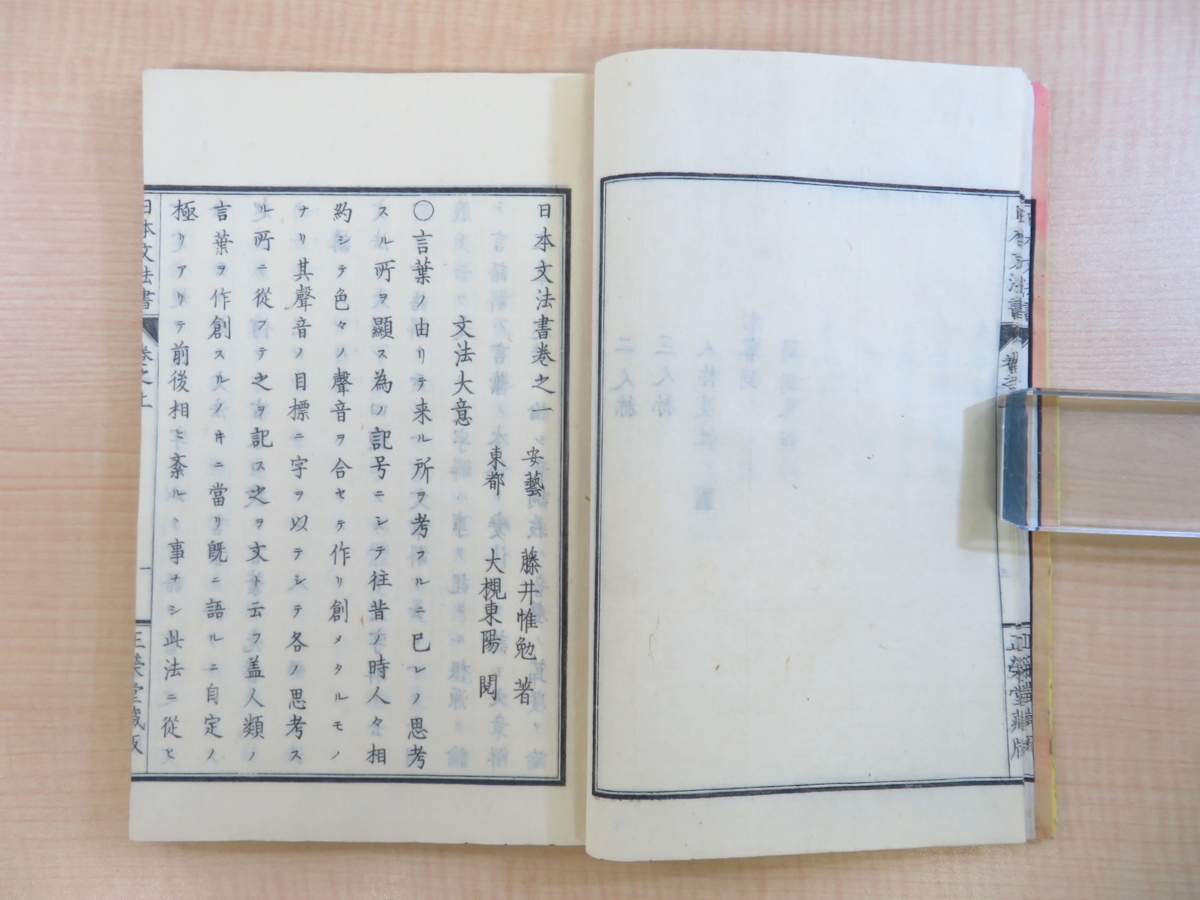 日本文法書卷之一
安藝 藤井惟勉 著
東都 大槻東陽 閲
文法大意
〇言葉ノ由リテ来ル所ヲ考フルニ已レノ思考
スル所ヲ顯ス為ノ記号ニシテ往昔ノ時人々相
約シテ色々ノ聲音ヲ合セテ作リ創メタルモノ
ナリ其聲音ノ目標ニ字ヲ以テシテ各ノ思考ス
ル所ニ從フテ之ヲ記ス之ヲ文ト云フ蓋人類ノ
言葉ヲ作創スルノ時ニ當リ既ニ語ルニ自定ノ
極リアリテ前後相ヒ紊ルヽ事ナシ此法ニ從ヒ
日本文法書
卷之上
一
正榮堂藏版
正榮堂藏版